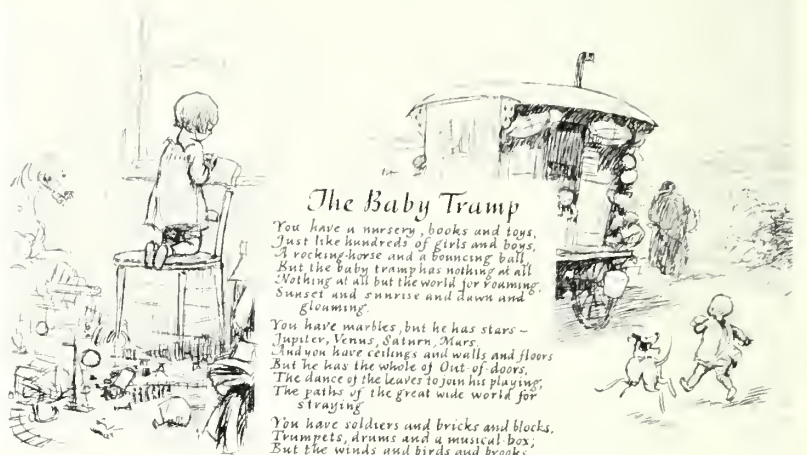 The Baby Tramp
You have a nursery, books and toys,
Just like hundreds of girls and boys,
A rocking-horse and a bouncing ball,
But the baby tramp has nothing at all
Nothing at all but the world for roaming,
Sunset and sunrise and dawn and
gloaming.
You have marbles, but he has stars –
Jupiter, Venus, Saturn, Mars,
And you have ceilings and walls and floors
But he has the whole of Out-of-doors,
The dance of the leaves to join his playing,
The paths of the great wide world for
straying
You have soldiers and bricks and blocks,
Trumpets, drums and a musical-box;
But the winds and birds and brooks